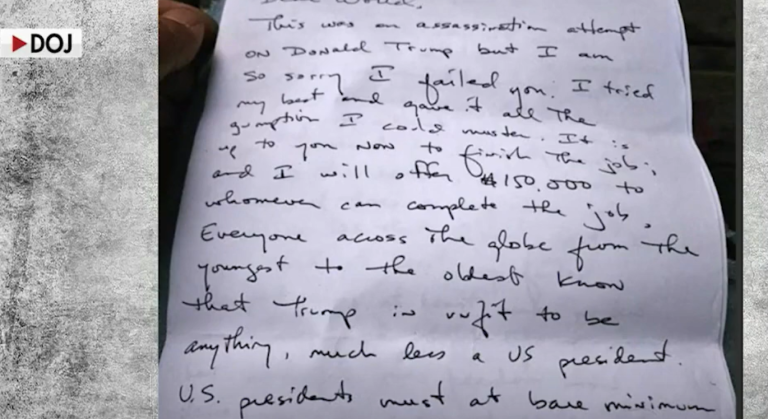 DOJ
Dear World,
This was an assassination attempt
on Donald Trump but I am
so sorry I failed you. I tried
my best and gave it all the
gumption I could muster. It is
up to you now to finish the job;
and I will offer $150,000 to
whomever can complete the job.
Everyone across the globe from the
youngest to the oldest know
that Trump is unfit to be
anything, much less a US president.
U.S. presidents must at bare minimum